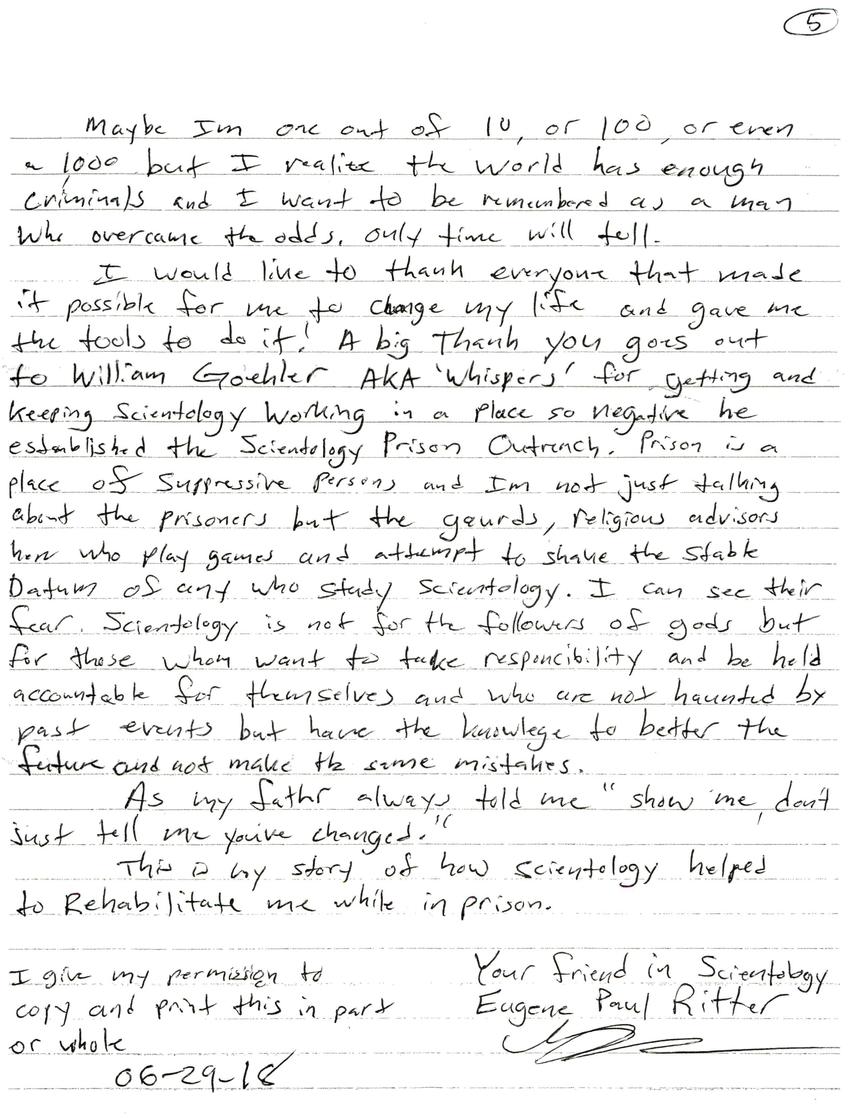 5
Maybe Im one out of 10, or 100, or even
a 1000 but I realize the world has enough
criminals and I want to be remembered as a man
who overcame the odds, only time will tell.
I would like to thank everyone that made
it possible for me to change my life and gave me
the tools to do it! A big Thank you goes out
to William Goehler AKA 'Whispers' for getting and
keeping Scientology Working in a place so negative he
established the Scientology Prison Outreach. Prison is a
place of Suppressive Persons and Im not just talking
about the prisoners but the gaurds, religious advisors
here who play games and attempt to shake the Stable
Datum of any who study Scientology. I can see their
fear. Scientology is not for the followers of gods but
for those whom want to take responcibility and be held
accountable for themselves and who are not haunted by
past events but have the knowlege to better the
future and not make the same mistakes.
As my fathr always told me "show me, don't
just tell me youive changed."
This is my story of how scientology helped
to Rehabilitate me while in prison.
I give my permission to
copy and print this in part
or whole
06-29-18
Your friend in Scientology
Eugene Paul Ritter